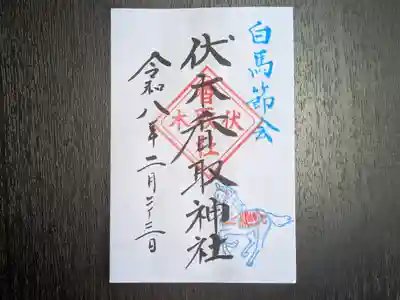 白馬節会
伏木香取神社
伏木
令和八年二月二十三日